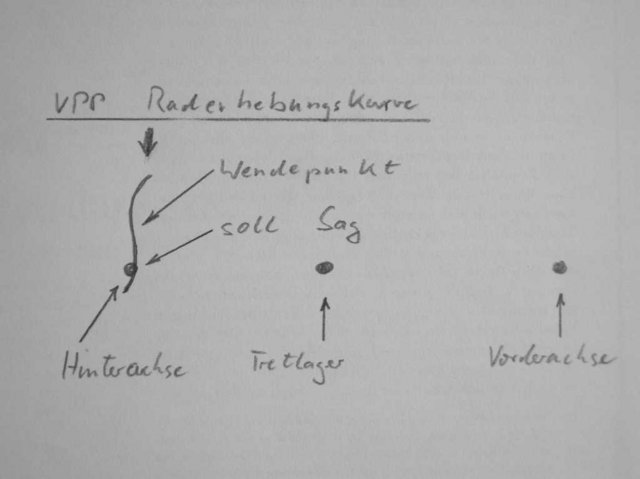 VPP Raderhebungskurve
Wendepunkt
soll Sag
Hinterachse
Tretlager
Vorderachse